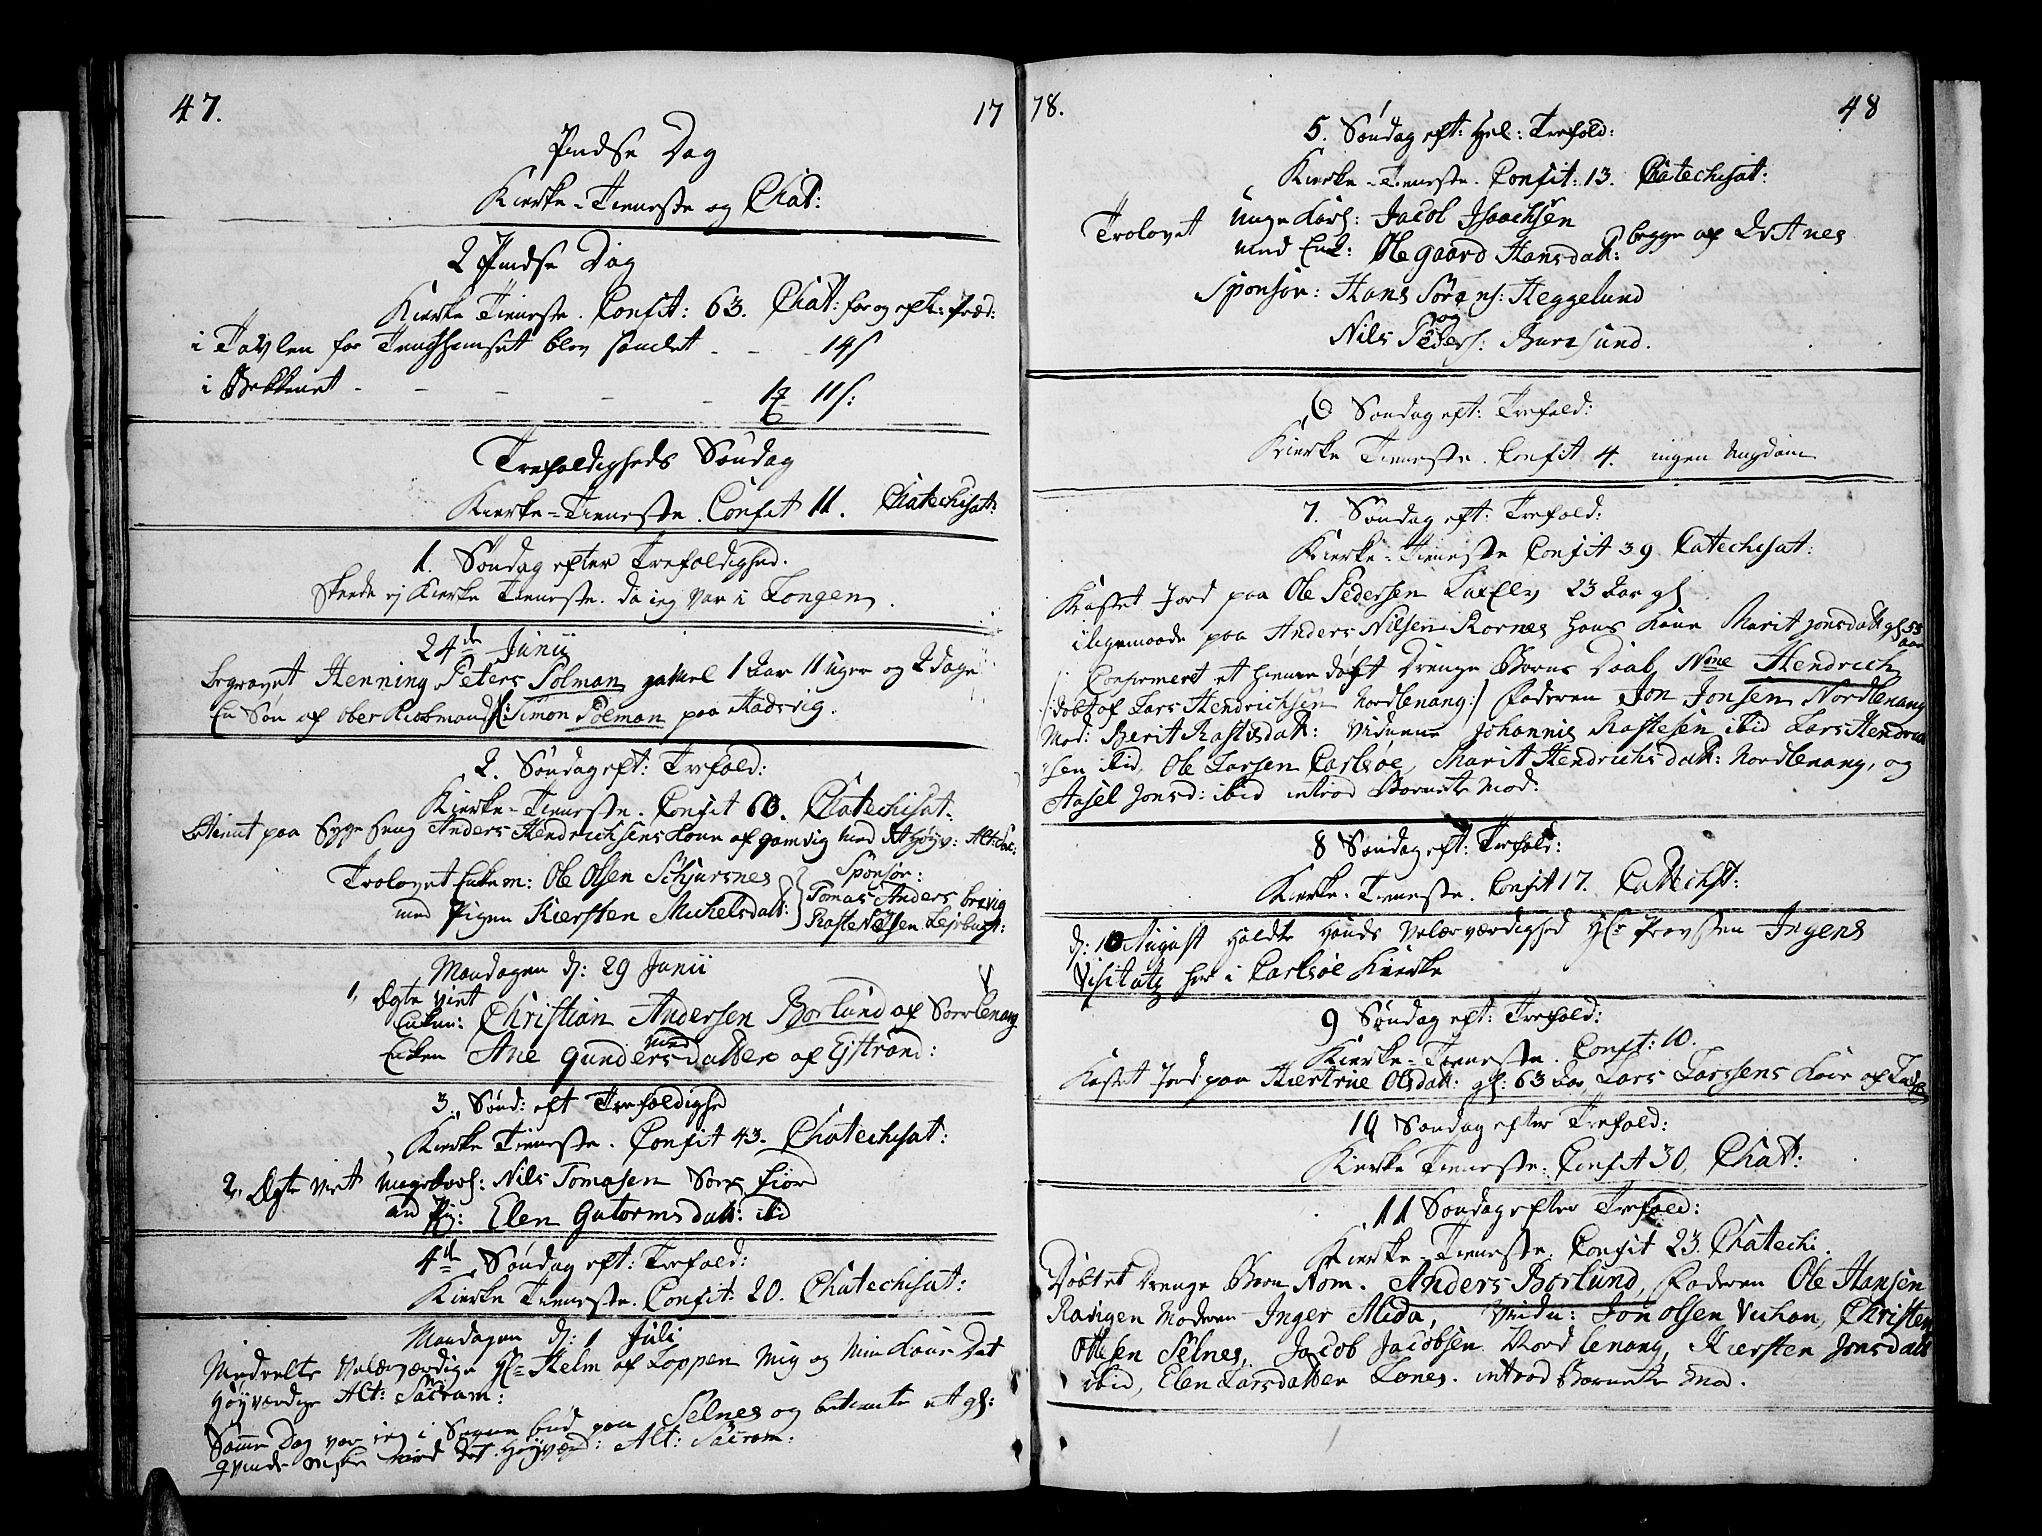 47. 17
Pindse Dag
Kierke-Tieneste og Chat:
2 Pindse Dag
Kierke Tieneste. Confit: 63. Chat: for og efter Præd:
i Tavlen for blev samlet - - - 14 s
i Bekkenet - - - - - 11 s:
Trefoldigheds Søndag
Kierke-Tieneste. Confit 11. Chatechisat:
1. Søndag efter Trefoldighed.
Skeede ej Kierke Tieneste. da ieg var i Lÿngen.
24de Junii
begravet Henning Peters Solman gammel 1 Aar 11 uger og 2 dage
En Søn af Ober Kiøbmand Hr: Simon Solman paa Hadsvig.
2. Søndag eft: Trefold:
Kierke-Tieneste. Confit 60. Chatechisat:
betient paa Syge Seng Anders Hendrichsens Kone af gamvig med det Høyv: Alt: Sac:
Trolovet Enkem: Ole Olsen Schjursnes Sponsor:
med Pigen Kiersten Michelsdatt: Tomas Anders: brevig
Raste Nilsen Lejrbugt:
Mandagen d: 29 Junii
1, Ægte viet
Enkem: Christian Andersen Borlund af Sørlenang
med
Enken Ane Gundersdatter af Ejstrand:
3. Sønd: eft Trefoldighed
Kierke Tieneste. Confit 43. Chatechisat:
2, Ægte viet ungekarl: Nils Tomasen Sørfiord
and Pig: Elen Gutormsdatt: ibid
4de Søndag eft: Trefold:
Kierke Tieneste. Confit: 20. Chatechisat:
Mandagen d: 1 Juli
Meddeelte Velærværdige Hr Helm af Loppen Mig og Min Kone Det
Høyværdige Alt: Sacram:
Samme Dag var ieg i Sogne bud paa Selnes og betiente et gl:
qvinde Menniske med det Høyværd: Alt: Sacram:
78. 48
5. Søndag eft: Hel: Trefold:
Kierke-Tieneste. Confit: 13. Chatechisat:
Trolovet Unge Karl: Jacob Isaachsen
med Enk: Olegaard Hansdatt: begge af Qvitnes
Sponsor: Hans Sørens: Heggelund
og
Nils Peders: Burøsund.
6 Søndag eft: Trefold:
Kierke Tieneste. Confit 4. ingen ungdom
7. Søndag eft: Trefold:
Kierke-Tieneste Confit 39 Catechisat:
Kastet Jord paa Ole Pedersen Laxelv 23 Aar gl
iligemaade paa Anders Nilsen Kornes hans Kone Marit Jonsdatt gl 53
aar
Confirmert et hiemme døbt Drenge Barns Daab Nône Hendrich
/:døbt af Lars Hendrichsen Nordlenang:/ Faderen Jon Jonsen Nordlenang
Mod: Berit Rastisdatt: Vidnerne Johannis Rastesen ibid Lars Hendrich
sen ibid, Ole Larsen Carlsøe, Marit Hendrichsdatt: Nordlenang, og
Aasel Jonsd: ibid introd Barnets Mod:
8 Søndag eft: Trefold:
Kierke-Tieneste. Confit 17. Cattechst:
d: 10 August Holdte Hands Velærværdighed Hr Provsten Jngens
Visitatz her i Carlsøe Kierke
9 Søndag eft: Trefold:
Kierke-Tieneste. Confit: 10.
Kastet Jord paa Kiertrue Olsdatt: gl: 63 Aar, Lars Larssens Kone af
10 Søndag efter Trefold:
Kierke Tieneste: Confit 30, Chat:
11 Søndag efter Trefold:
Kierke-Tieneste. Confit 23. Chatechi.
Døbtet Drenge Barn Nom. Anders Borlund, Faderen Ole Hansen
Ravigen Moderen Inger Mida, Vidn: Jon Olsen Vichan, Christen
Ottesen Selnes, Jacob Jacobsen Nordlenang, Kiersten Jonsdatt
ibid, Elen Larsdatter Lønes. introd Barnets Mod.